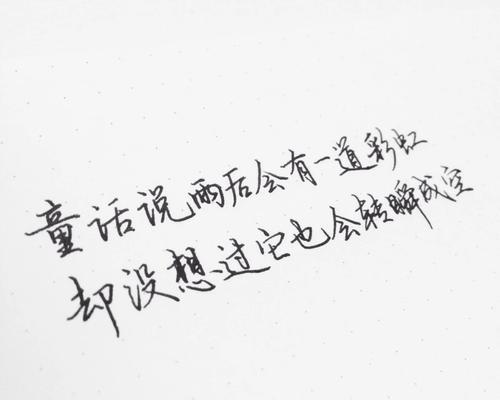 童话说雨后会有一道彩虹
却没想过它也会转瞬成空